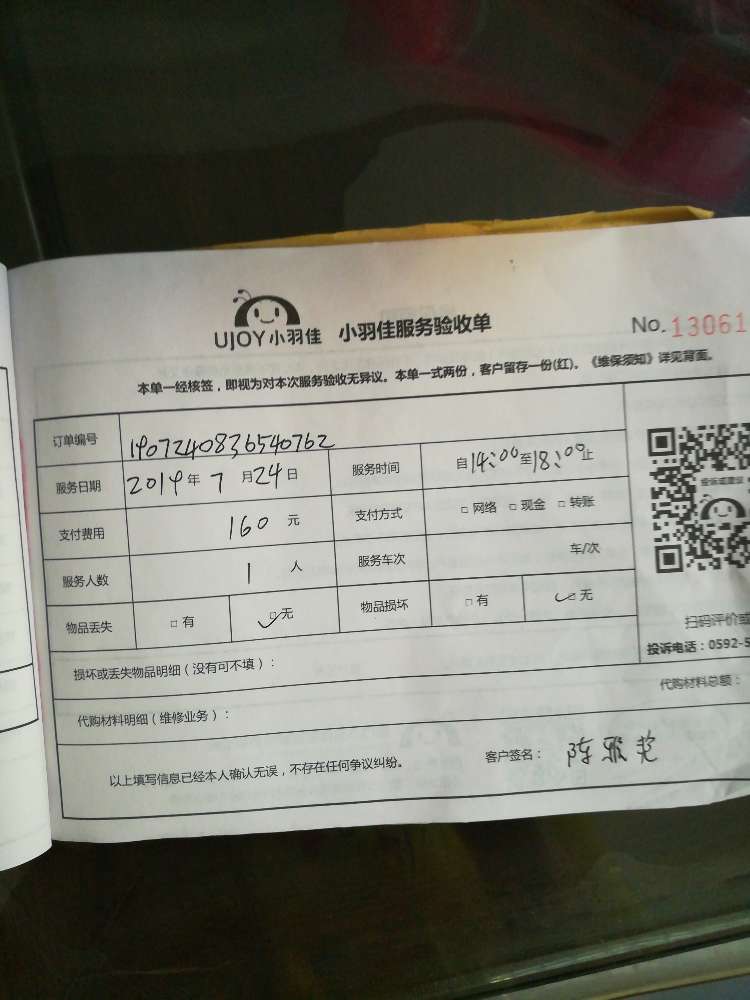 UJOY小羽佳 小羽佳服务验收单 No.13061
本单一经核签，即视为对本次服务验收无异议。本单一式两份，客户留存一份(红)。《维保须知》详见背面。
订单编号 190724083654076​2
服务日期 2019年 7 月24日 服务时间 自14:00至18:00止
支付费用 160 元 支付方式 □网络 □现金 □转账
服务人数 1 人 服务车次 车/次
物品丢失 □有 ✓□无 物品损坏 □有 ✓□无
投诉或建议
扫码评价或
投诉电话：0592-5
损坏或丢失物品明细（没有可不填）：
代购材料明细（维修业务）： 代购材料总额：
以上填写信息已经本人确认无误，不存在任何争议纠纷。 客户签名： 陈雅